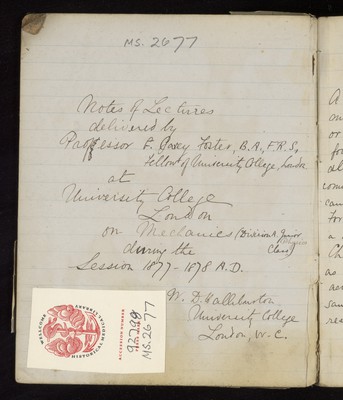 MS. 2677
Notes of Lectures
delivered by
Professor F. Carey Foster, B.A., F.R.S.,
Fellow of University College, London
at
University College
London
on Mechanics (Division A. Junior
Physics
Class)
during the
Session 1877-1878 A.D.
W. D. Halliburton
University College
London, W.C.
WELLCOME
HISTORICAL
MEDICAL LIBRARY
ACCESSION NUMBER
PRESS MARK
MS. 2677